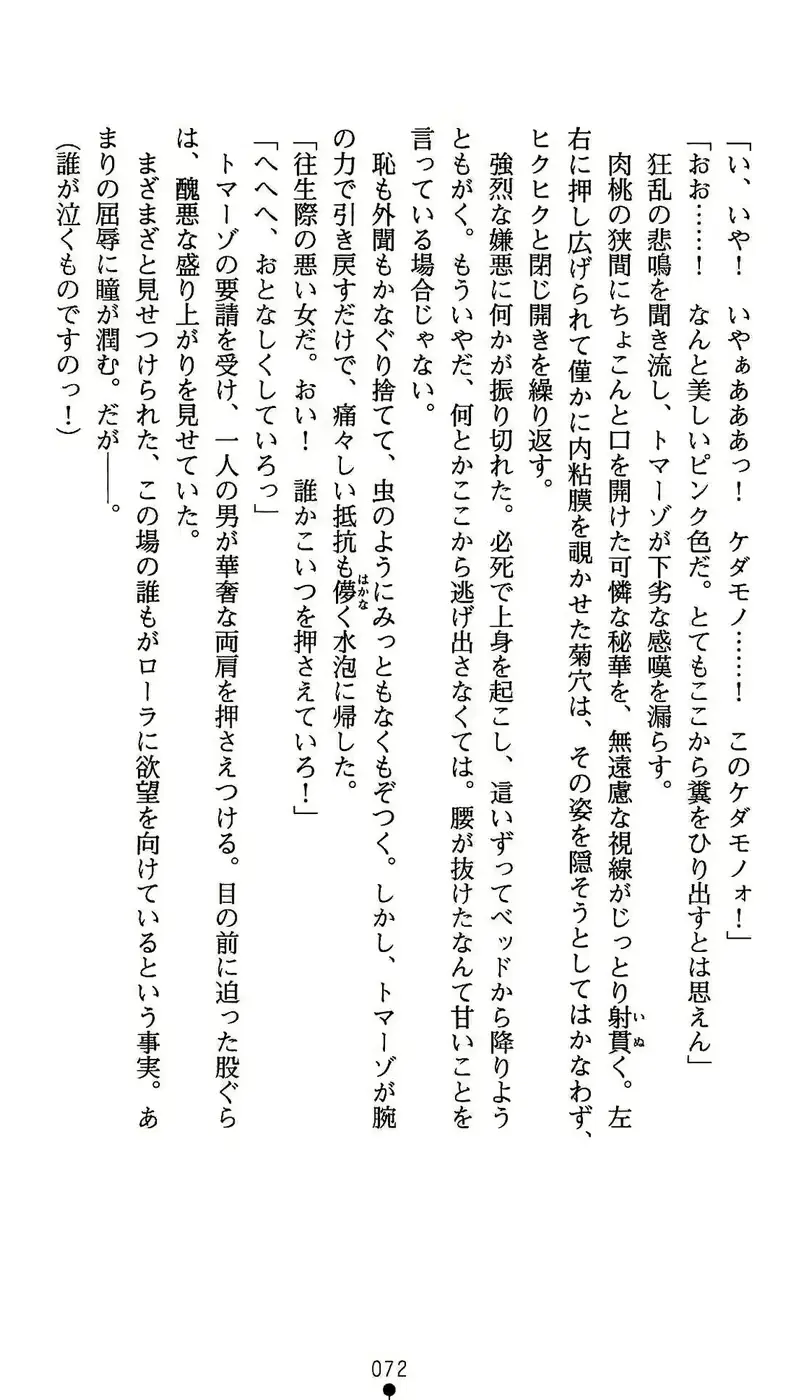 「い、いや！　いやぁあああっ！　ケダモノ……！　このケダモノォ！」
「おお……！　なんと美しいピンク色だ。とてもここから糞をひり出すとは思えん」
　狂乱の悲鳴を聞き流し、トマーゾが下劣な感嘆を漏らす。
　肉桃の狭間にちょこんと口を開けた可憐な秘華を、無遠慮な視線がじっとり射貫く。左
右に押し広げられて僅かに内粘膜を覗かせた菊穴は、その姿を隠そうとしてはかなわず、
ヒクヒクと閉じ開きを繰り返す。
　強烈な嫌悪に何かが振り切れた。必死で上身を起こし、這いずってベッドから降りよう
ともがく。もういやだ、何とかここから逃げ出さなくては。腰が抜けたなんて甘いことを
言っている場合じゃない。
　恥も外聞もかなぐり捨てて、虫のようにみっともなくもぞつく。しかし、トマーゾが腕
の力で引き戻すだけで、痛々しい抵抗も儚く水泡に帰した。
「往生際の悪い女だ。おい！　誰かこいつを押さえていろ！」
「へへへ、おとなしくしていろっ」
　トマーゾの要請を受け、一人の男が華奢な両肩を押さえつける。目の前に迫った股ぐら
は、醜悪な盛り上がりを見せていた。
　まざまざと見せつけられた、この場の誰もがローラに欲望を向けているという事実。あ
まりの屈辱に瞳が潤む。だが――。
（誰が泣くものですのっ！）
072